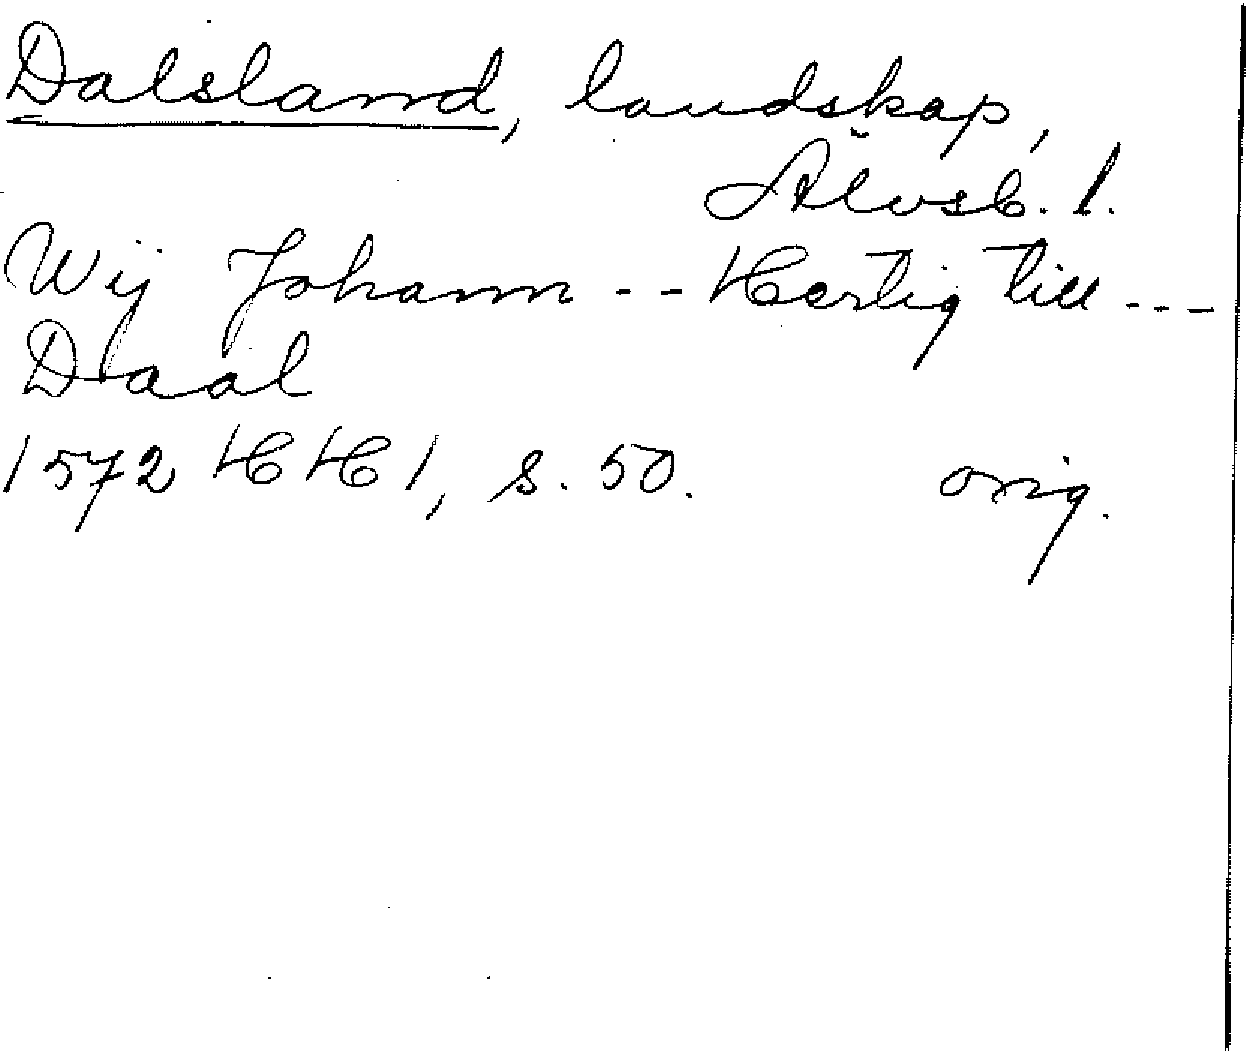 Dalsland, landskap,
Älvsb. l.
Wij Johann -- Hertig till ---
Daal
1572 HH 1, s. 50. orig.